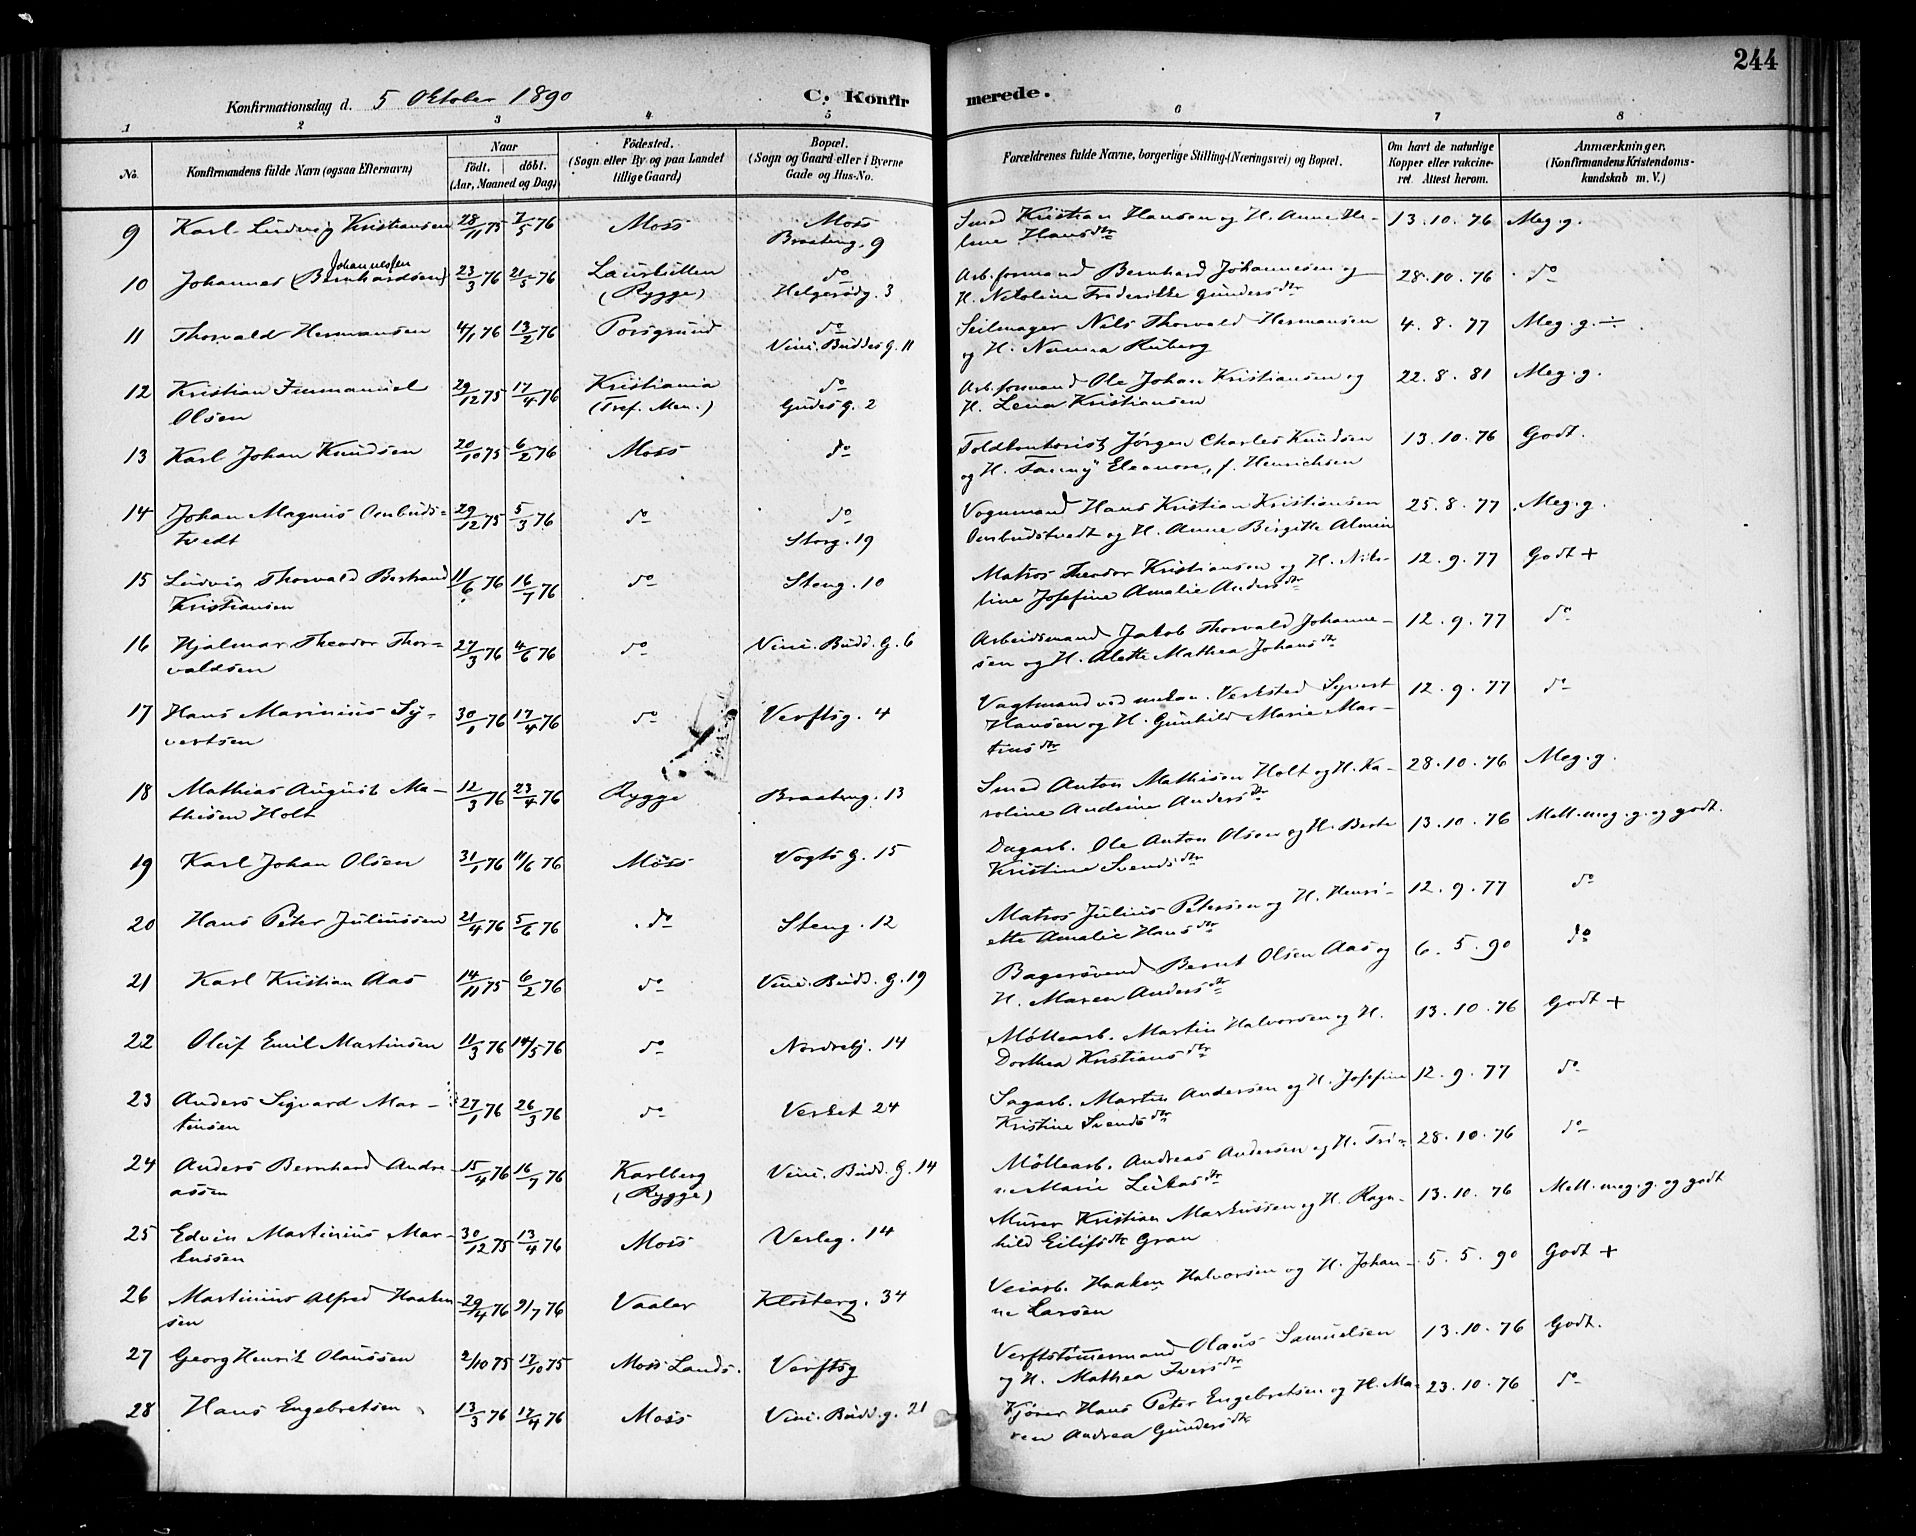 244
Konfirmationsdag d. 5 Oktober 1890 C. Konfirmerede.
1 2 3 4 5 6 7 8
No. Konfirmandens fulde Navn (ogsaa Efternavn) Naar Födt. döbt. (Aar, Maaned og Dag) Födested. (Sogn eller By og paa Landet tillige Gaard) Bopæl. (Sogn og Gaard eller i Byerne Gade og Hus-No. Forældrenes fulde Navne, borgerlige Stilling (Næringsvei) og Bopæl. Om havt de naturlige Kopper eller vakcineret. Attest herom. Anmærkninger. (Konfirmandens Kristendomskundskab m. V.)
9 Karl Ludvig Kristiansen 28/11 75 7/5 76 Moss Moss Braateng. 9 Smed Kristian Hansen og H. Anne Heline Hansdtr 13.10.76 Meg. g.
10 Johannes (Bernhardsen) Johannessen 23/3 76 21/5 76 (Rygge) do Helgerødg. 3 Arb.formand Bernhard Johannesen og H. Netoline Frederikke Gundersdtr 28.10.76 do
11 Thorvald Hermansen 4/1 76 13/2 76 Porsgrund do Vinc. Buddes G. 11 Seilmager Nils Thorvald Hermansen og H. Huberg 4.8.77 Meg. g. ÷
12 Kristian Immanuel Olsen 29/12 75 17/4 76 Kristiania (Tref. Men.) do Gudes G. 2 Arb.formand Ole Johan Kristiansen og H. Lena Kristiansen 22.8.81 Meg. g.
13 Karl Johan Knudsen 20/10 75 6/2 76 Moss do Toldkontorist Jørgen Charles Knudsen og H. Fanny Eleonore, f. Henrichsen 13.10.76 Godt.
14 Johan Magnus Ombudstvedt 29/12 75 5/3 76 do do Storg. 19 Vognmand Hans Kristian Kristiansen Ombudstvedt og H. Anne Birgitte Almin 25.8.77 Meg. g.
15 Ludvig Thorvald Bertrand Kristiansen 11/6 76 16/7 76 do Steng. 10 Matros Theodor Kristiansen og H. Nikoline Josefine Amalie Andersdtr 12.9.77 Godt +
16 Hjalmar Theodor Thorvaldsen 27/3 76 4/6 76 do Vinc. Budd. G. 6 Arbeidsmand Jakob Thorvald Johannesen og H. Alette Mathea Johansdtr 12.9.77 do
17 Hans Marinius Syvertsen 30/1 76 17/4 76 do Verftsg. 4 Vagtmand ved mekan. Verksted Syvert Hansen og H. Gunhild Marie Martinsdtr 12.9.77 do
18 Mathias August Mathisen Holt 12/3 76 23/4 76 Rygge Braateng. 13 Smed Anton Mathisen Holt og H. Karoline Andrine Andersdtr 28.10.76 Meg. g.
19 Karl Johan Olsen 31/1 76 11/6 76 Moss Vogts G. 15 Dagarb. Ole Anton Olsen og H. Berte Kristine Svendsdtr 13.10.76 Mell. meg. g. og godt.
20 Hans Peter Juliussen 21/4 76 5/6 76 do Steng. 12 Matros Julius Petersen og H. Henriette Amalie Hansdtr 12.9.77 do
21 Karl Kristian Aas 14/11 75 6/2 76 do Vinc. Budd. G. 19 Bagersvend Bernt Olsen Aas og H. Maren Andersdtr 6.5.90 do
22 Oluf Emil Martinsen 11/3 76 14/5 76 do Nordrebj. 14 Møllearb. Martin Halvorsen og H. Dorthea Kristiansdtr 13.10.76 Godt +
23 Anders Sigvard Martinsen 27/1 76 26/3 76 do Verket 24 Sagarb. Martin Andersen og H. Josefine Kristine Svendsdtr 12.9.77 do
24 Anders Bernhard Andreassen 15/4 76 16/7 76 Karlberg (Rygge) Vinc. Budd. G. 14 Møllearb. Andreas Andersen og H. Trine Marie Lukasdtr 28.10.76 do
25 Edvin Martinius Markussen 30/12 75 13/4 76 Moss Verleg. 14 Murer Kristian Markussen og H. Ragnhild Eilifsdtr Gran 13.10.76 Mell. meg. g. og godt
26 Martinius Alfred Haakensen 29/4 76 9/7 76 Vaaler Klosterg. 34 Veiarb. Haaken Halvorsen og H. Johanne Larsen 5.5.90 Godt +
27 Georg Henrik Olaussen 2/10 75 17/10 75 Moss Lands. Verftsg Verftstømermand Olaus Samuelsen og H. Mathea Iversdtr 13.10.76 Godt.
28 Hans Engebretsen 13/3 76 17/4 76 Moss Vinc. Budd. g. 21 Kjører Hans Peter Engebretsen og H. Maren Andrea Gundersdtr 23.10.76 do